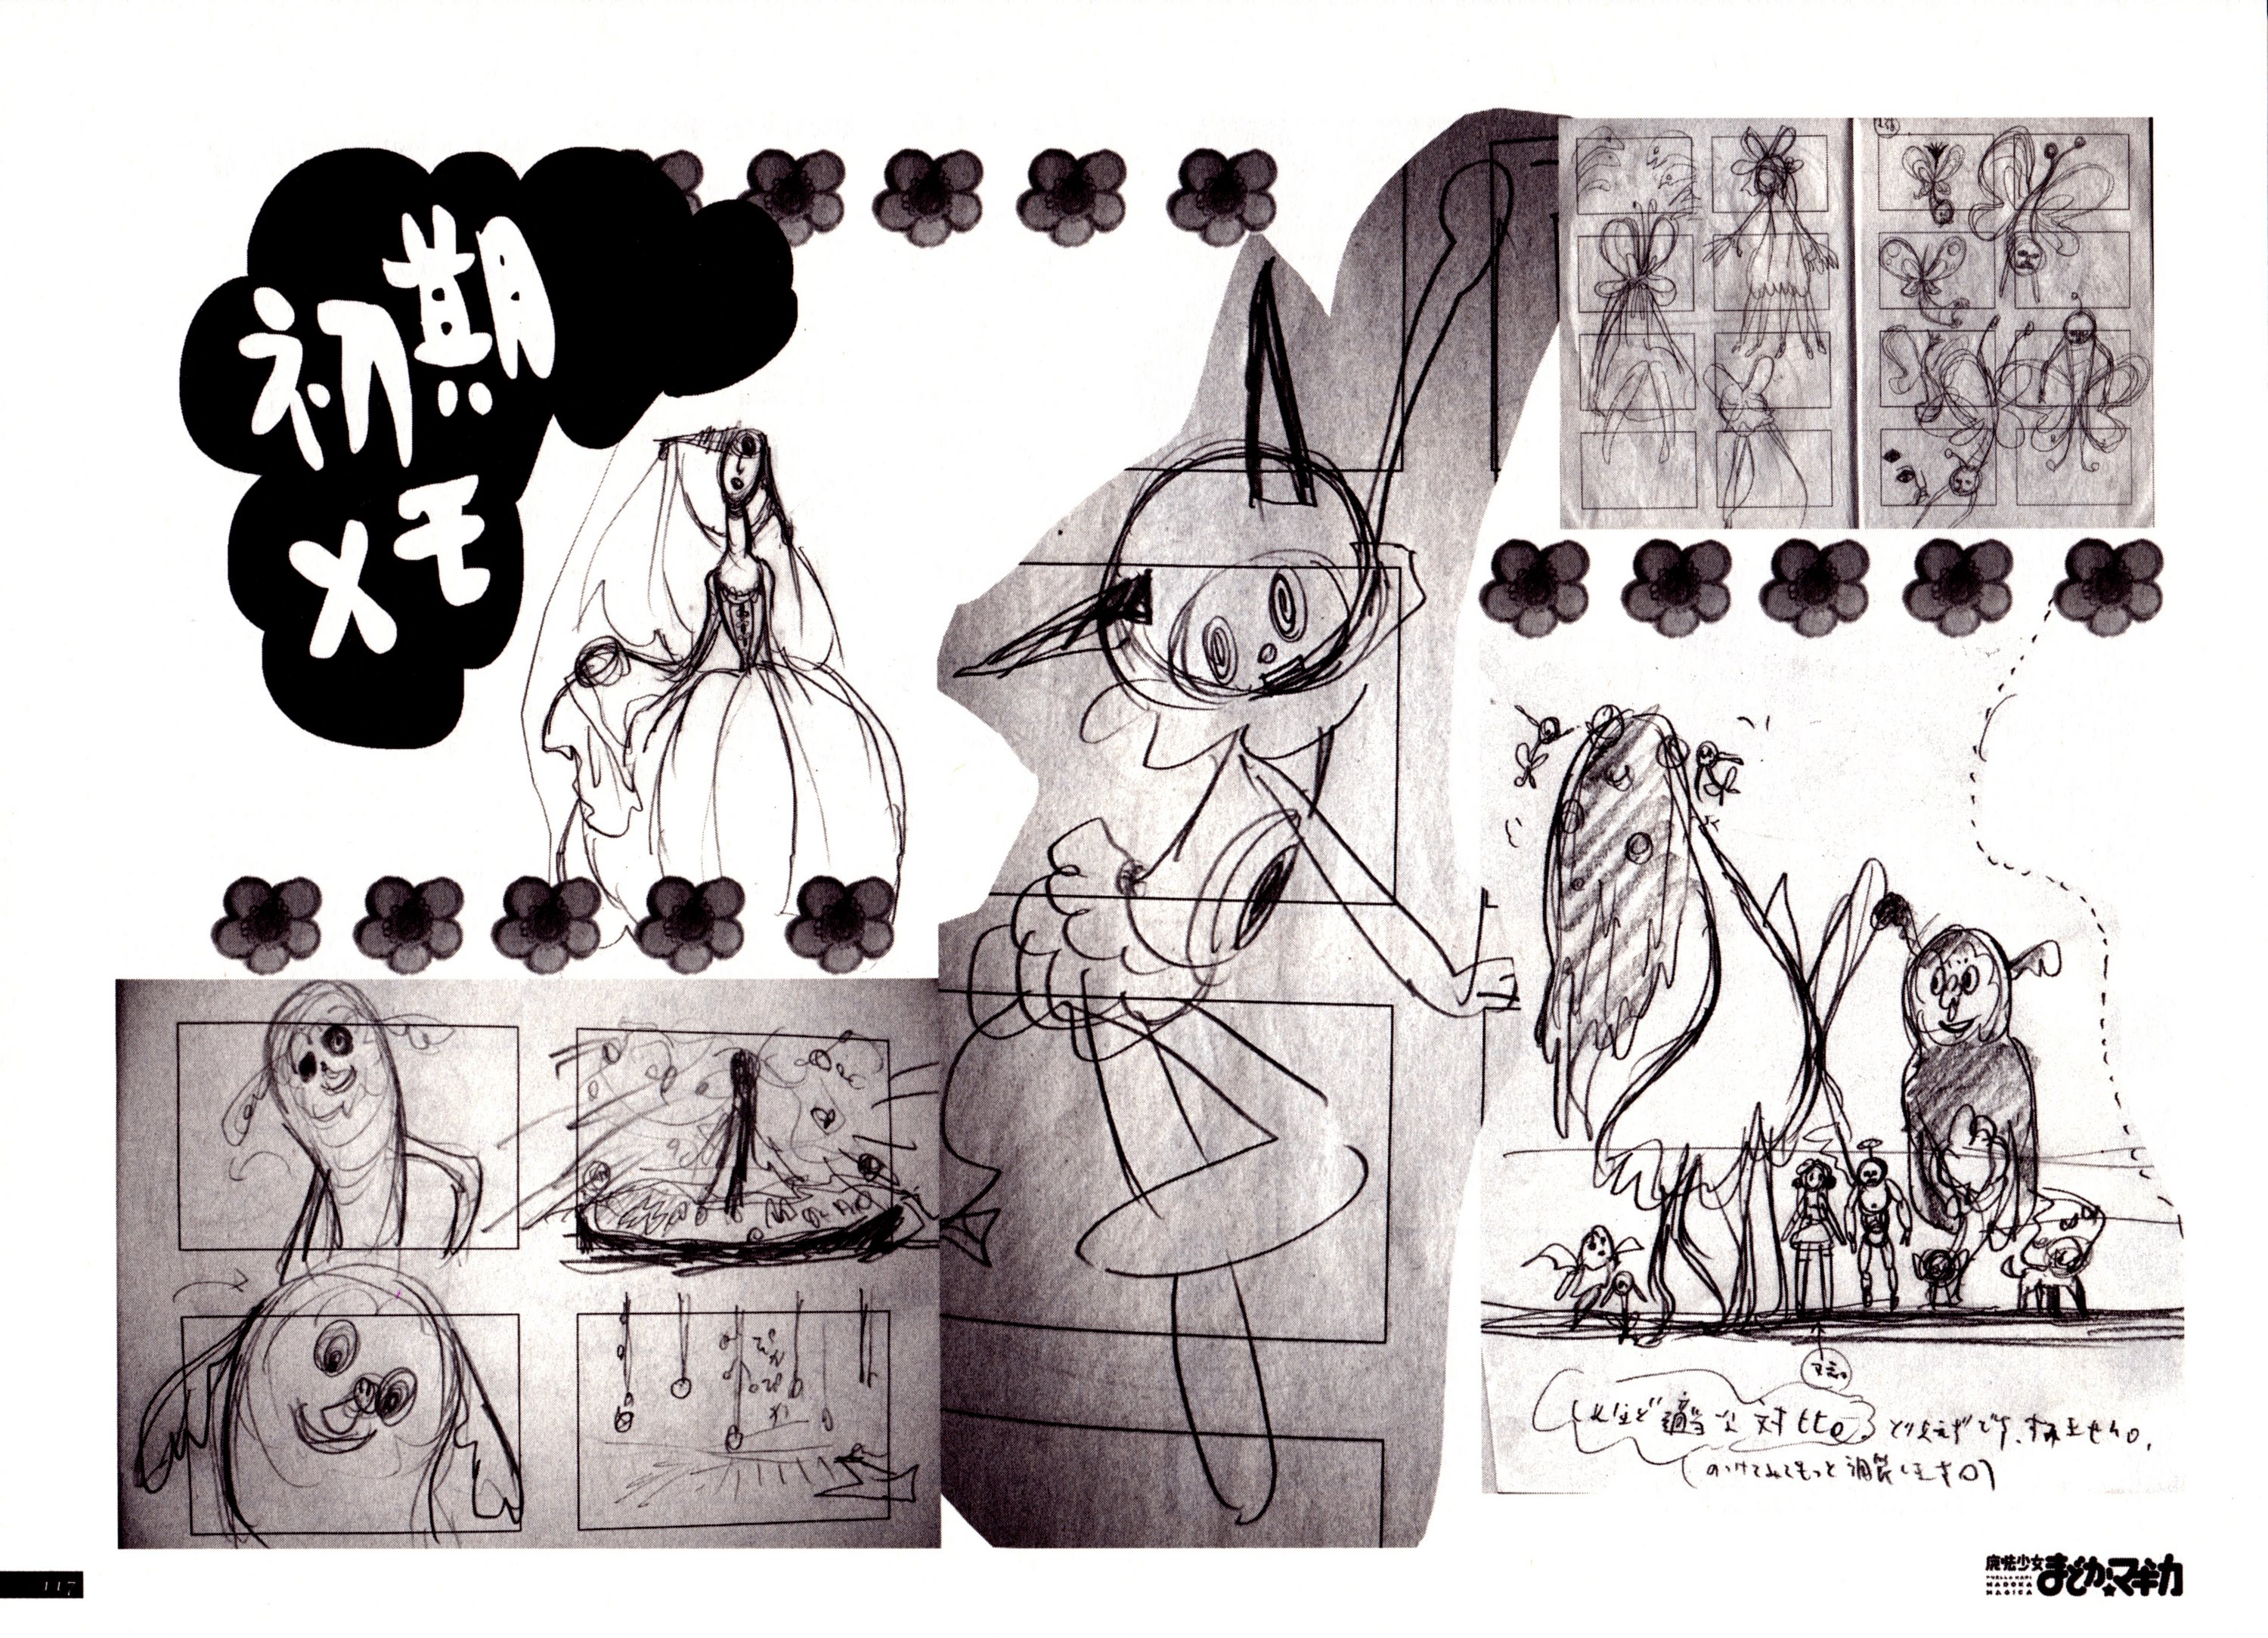 初期
メモ
マミ
適当な対比。とりあえずです、すみません。
(のっけてみてもっと調節します。)
117
魔法少女
まどか☆マギカ
PUELLA MAGI
MADOKA
MAGICA